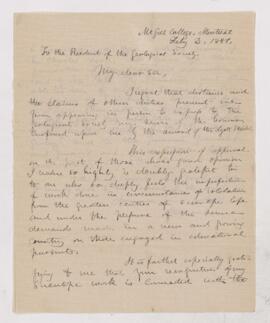 McGill College, Montreal
Feby 2, 1881.
To the President of the Geological Society
My dear Sir,
I regret that distance and
the claims of other duties prevent me
from appearing in person to express to the
Geological Society my sense of the honour
conferred upon me by the award of the Lyell Medal
This expression of approval
on the part of those whose good opinion
I value so highly is doubly grateful to
me who so deeply feels the imperfection
of work done in circumstances of isolation
from the greater centres of scientific life
and under the pressure of the
demands made in a new and growing
country on those engaged in educational
pursuits.
It is farther especially grati-
fying to me that your recognition of my
scientific work is connected with the